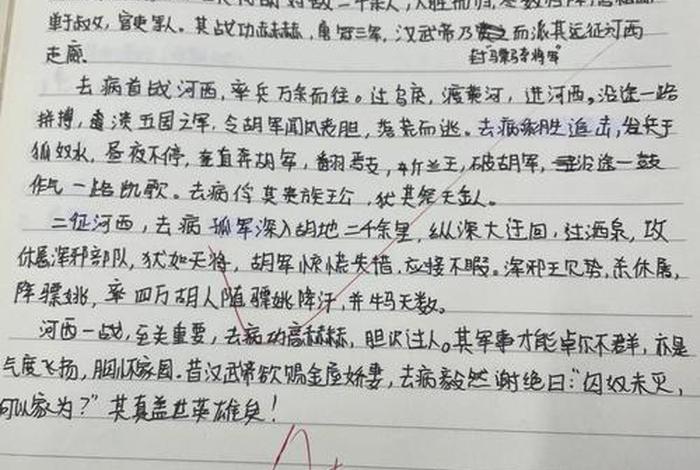 单于叔父,官吏军人。其战功赫赫,勇冠三军,汉武帝乃赞之而派其远征河西
封"骠骑将军"
走廊
去病首战河西,率兵万余而往。过乌戾,渡黄河,进河西。沿途一路
拼搏,遭溃五国之军,令胡军闻风丧胆,落荒而逃。去病乘胜追击,发兵于
狐奴水,昼夜不停,直奔胡军,翻焉支,斩兰王,破胡军,沿途一鼓
作气一路凯歌。去病俘其贵族王公,犹其祭天金人。
二征河西,去病孤军深入胡地二千余里,纵深大迂回,过酒泉,攻
休屠浑邪部队,犹如天将,胡军惊慌失措,应接不暇。浑邪王见势,杀休屠,
降骠姚,率四万胡人随骠姚降汗,并牛马天数。
河西一战,至关重要,去病功高赫赫,胆识过人。其军事才能卓尔不群,亦是
气度飞扬,胸怀家国。昔汉武帝欲赐金屋娇妻,去病毅然谢绝曰:"囟奴未灭,
何以家为?"其真盖世英雄矣!